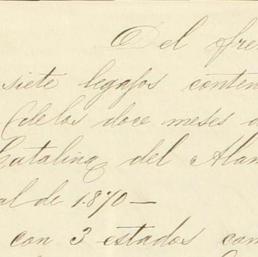 Del fre
siete legajos conten
(de los doce meses d
Catalina del Alam
al de 1870—
con 3 estados com